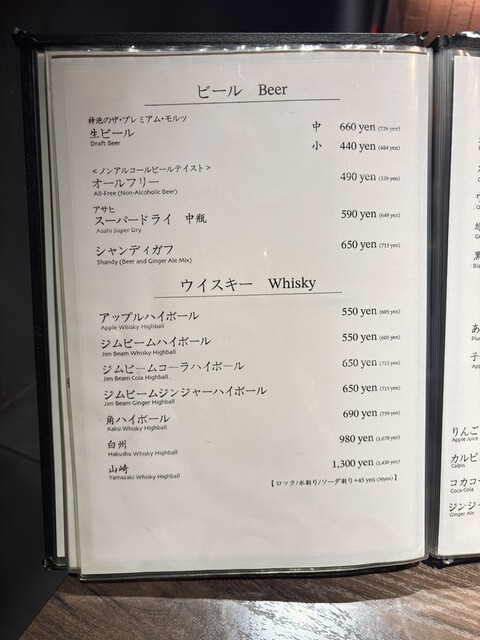 ビール Beer
神泡のザ・プレミアム・モルツ
生ビール 中 660 yen (726 yen)
Draft Beer
小 440 yen (484 yen)
<ノンアルコールビールテイスト>
オールフリー 490 yen (539 yen)
All-Free (Non-Alcoholic Beer)
アサヒ
スーパードライ 中瓶 590 yen (649 yen)
Asahi Super Dry
シャンディガフ 650 yen (715 yen)
Shandy (Beer and Ginger Ale Mix)
ウイスキー Whisky
アップルハイボール 550 yen (605 yen)
Apple Whisky Highball
ジムビームハイボール 550 yen (605 yen)
Jim Beam Whisky Highball
ジムビームコーラハイボール 650 yen (715 yen)
Jim Beam Cola Highball
ジムビームジンジャーハイボール 650 yen (715 yen)
Jim Beam Ginger Highball
角ハイボール 690 yen (759 yen)
Kaku Whisky Highball
白州 980 yen (1,078 yen)
Hakushu Whisky Highball
山崎 1,300 yen (1,430 yen)
Yamazaki Whisky Highball
【ロック/水割り/ソーダ割り+45 yen (50yen)】
りんご
Apple Juice
カルピ
Calpis
コカコ
Coca-Cola
ジンジ
Ginger Ale